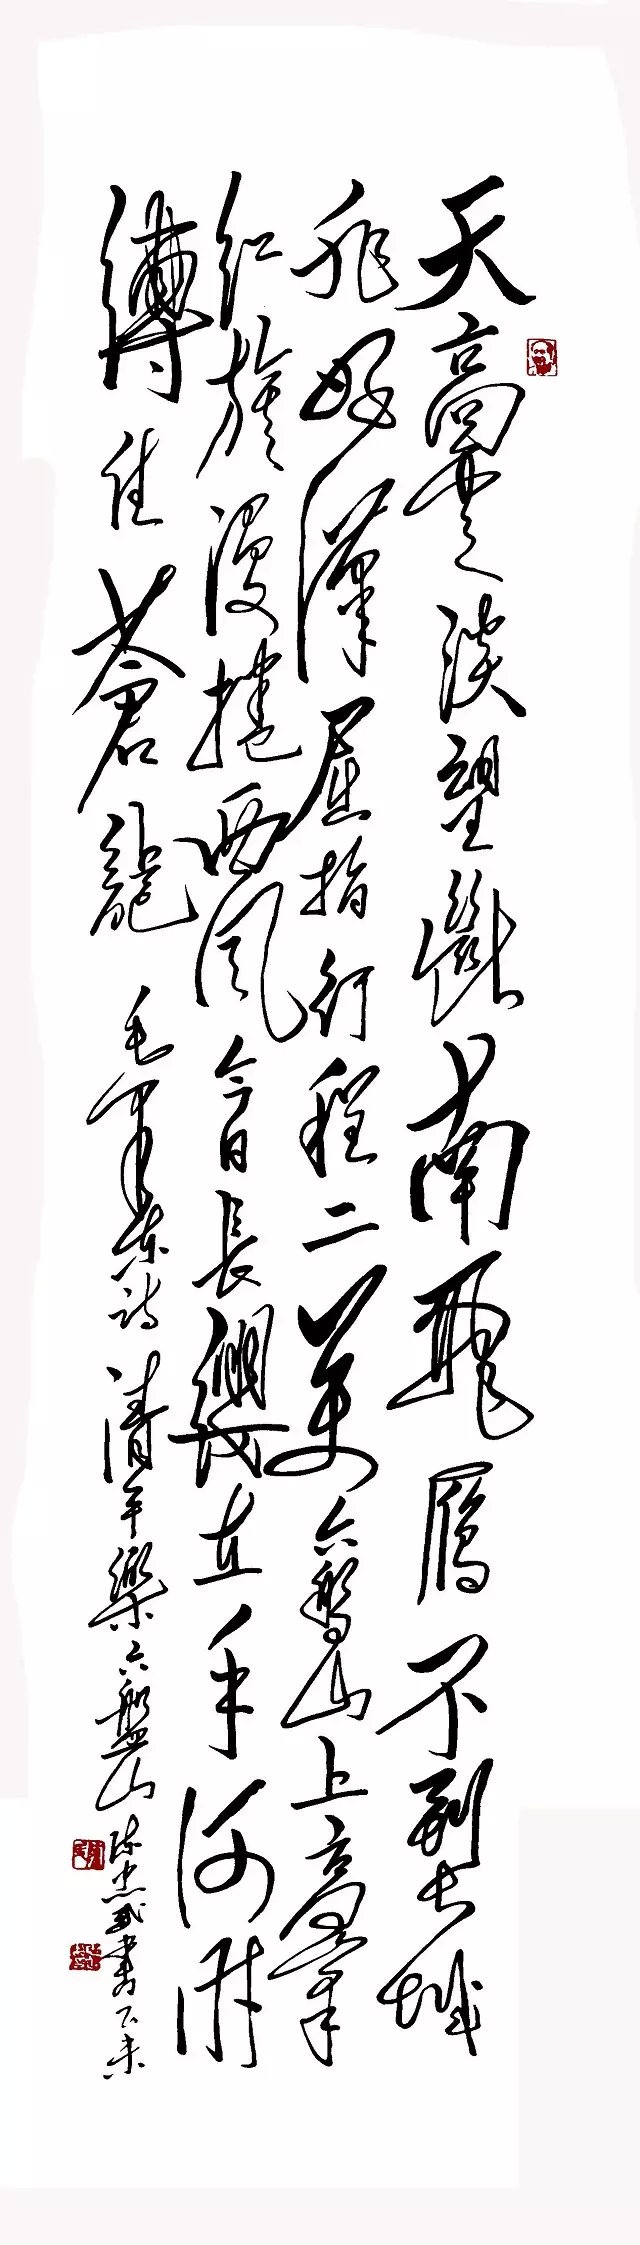 天高雲淡望斷南飛鴈不到長城
非好漢屈指行程二萬六盤山上高峯
紅旗漫捲西風今日長纓在手何時
縛住蒼龍 毛澤東詩 清平樂六盤山 陈忠書 乙未